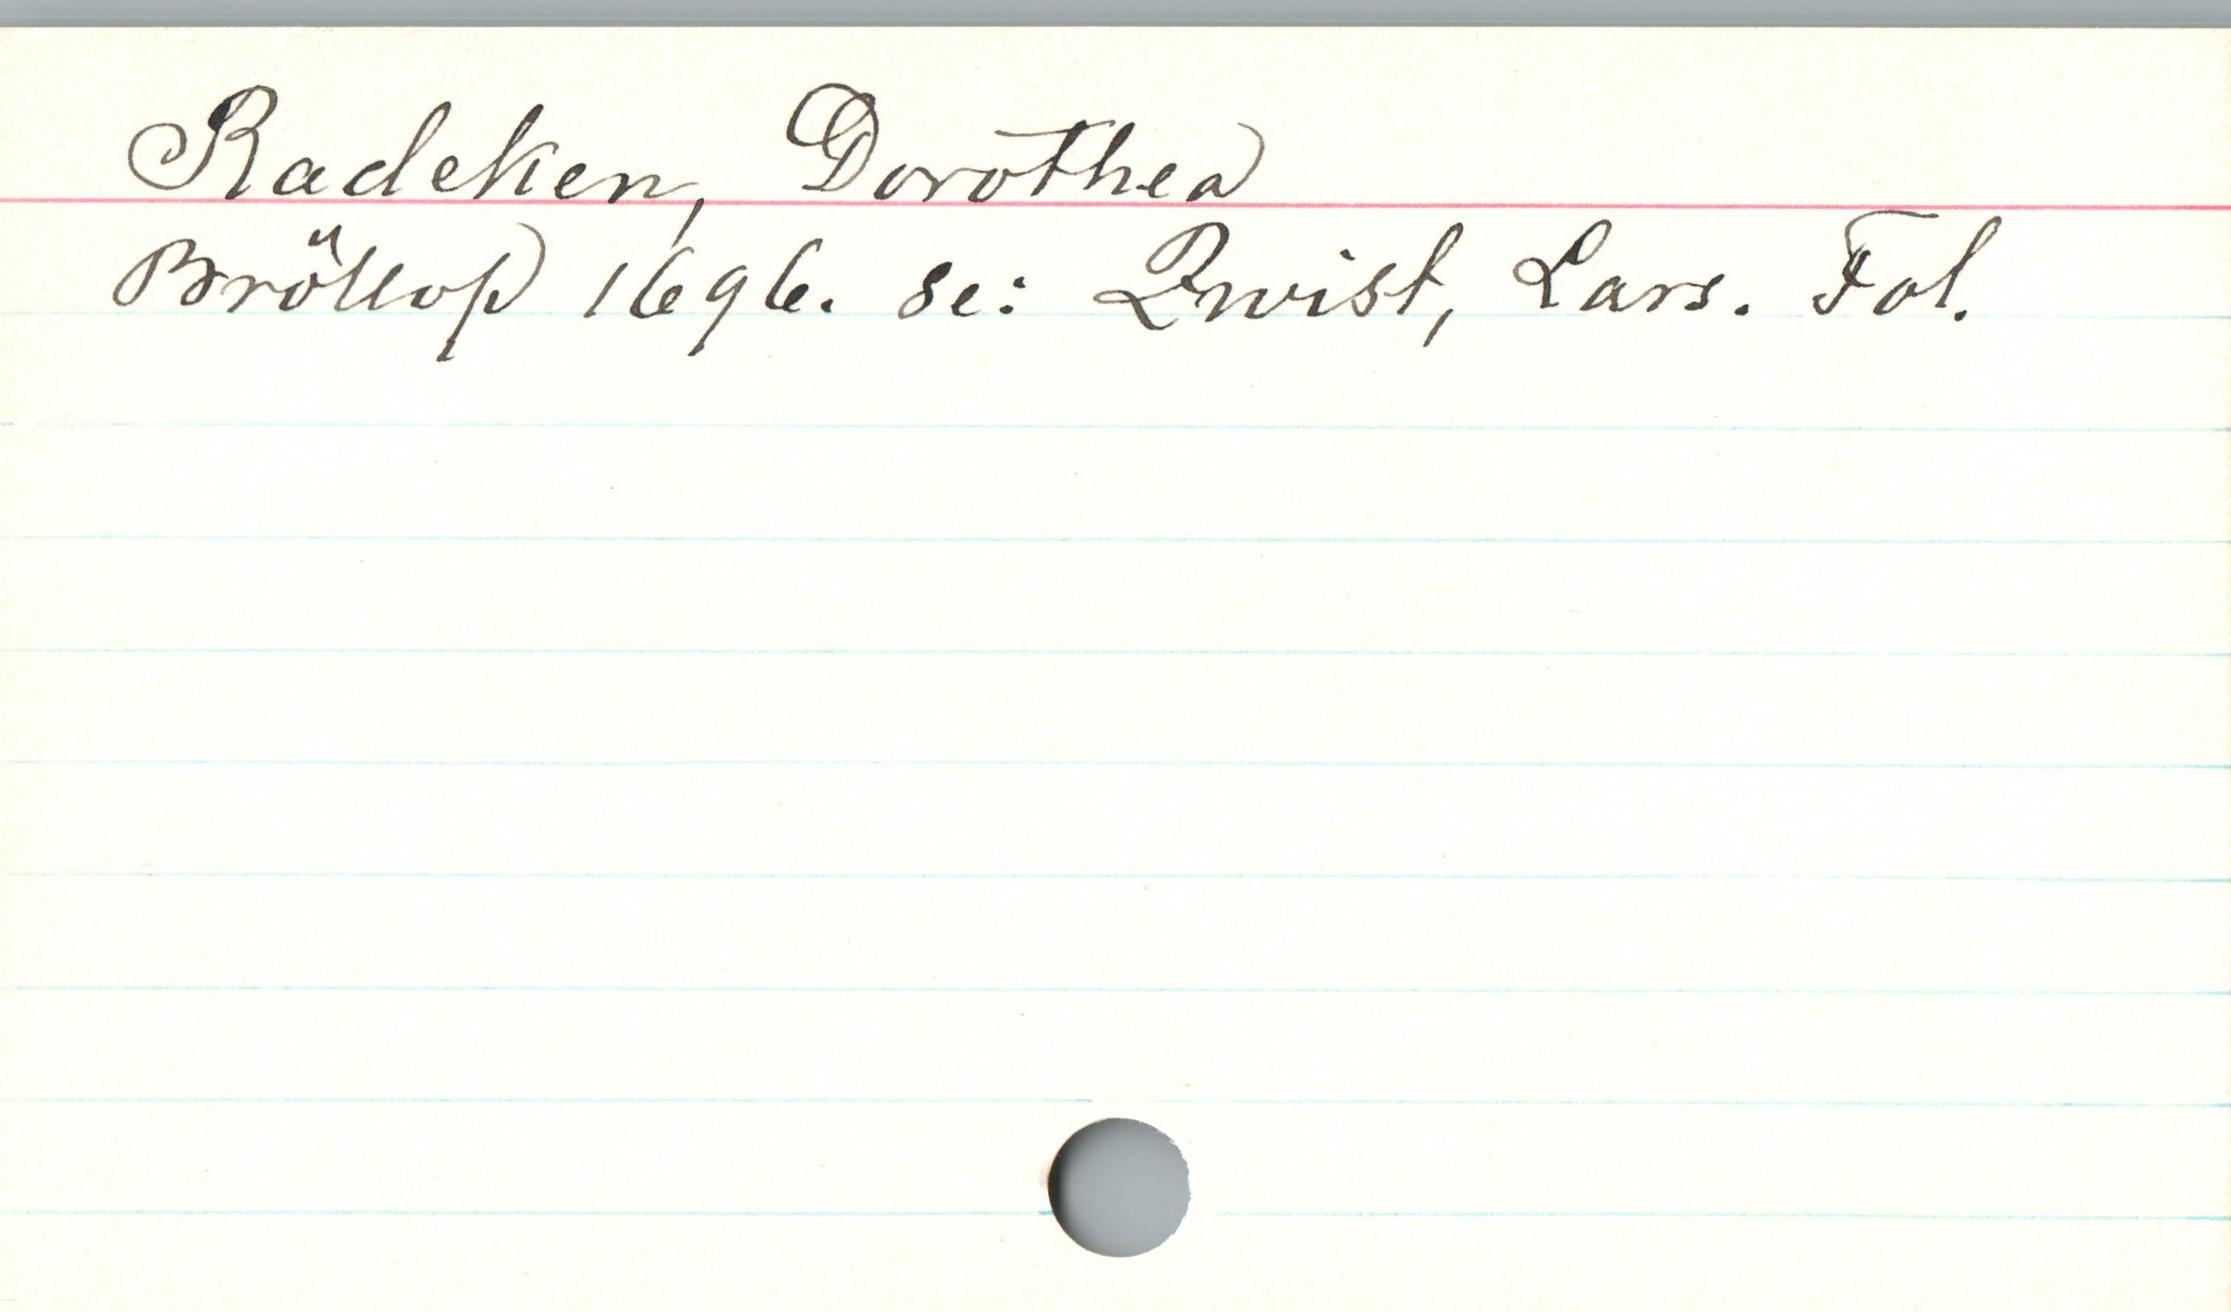 Radeken, Dorothea
Bröllop 1696. se: Qwist, Lars. Fol.